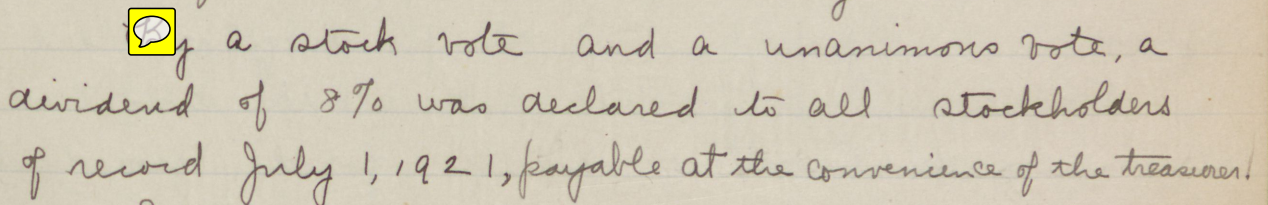 By a stock vote and a unanimous vote, a
dividend of 8% was declared to all stockholders
of record July 1, 1921, payable at the convenience of the treasurer.